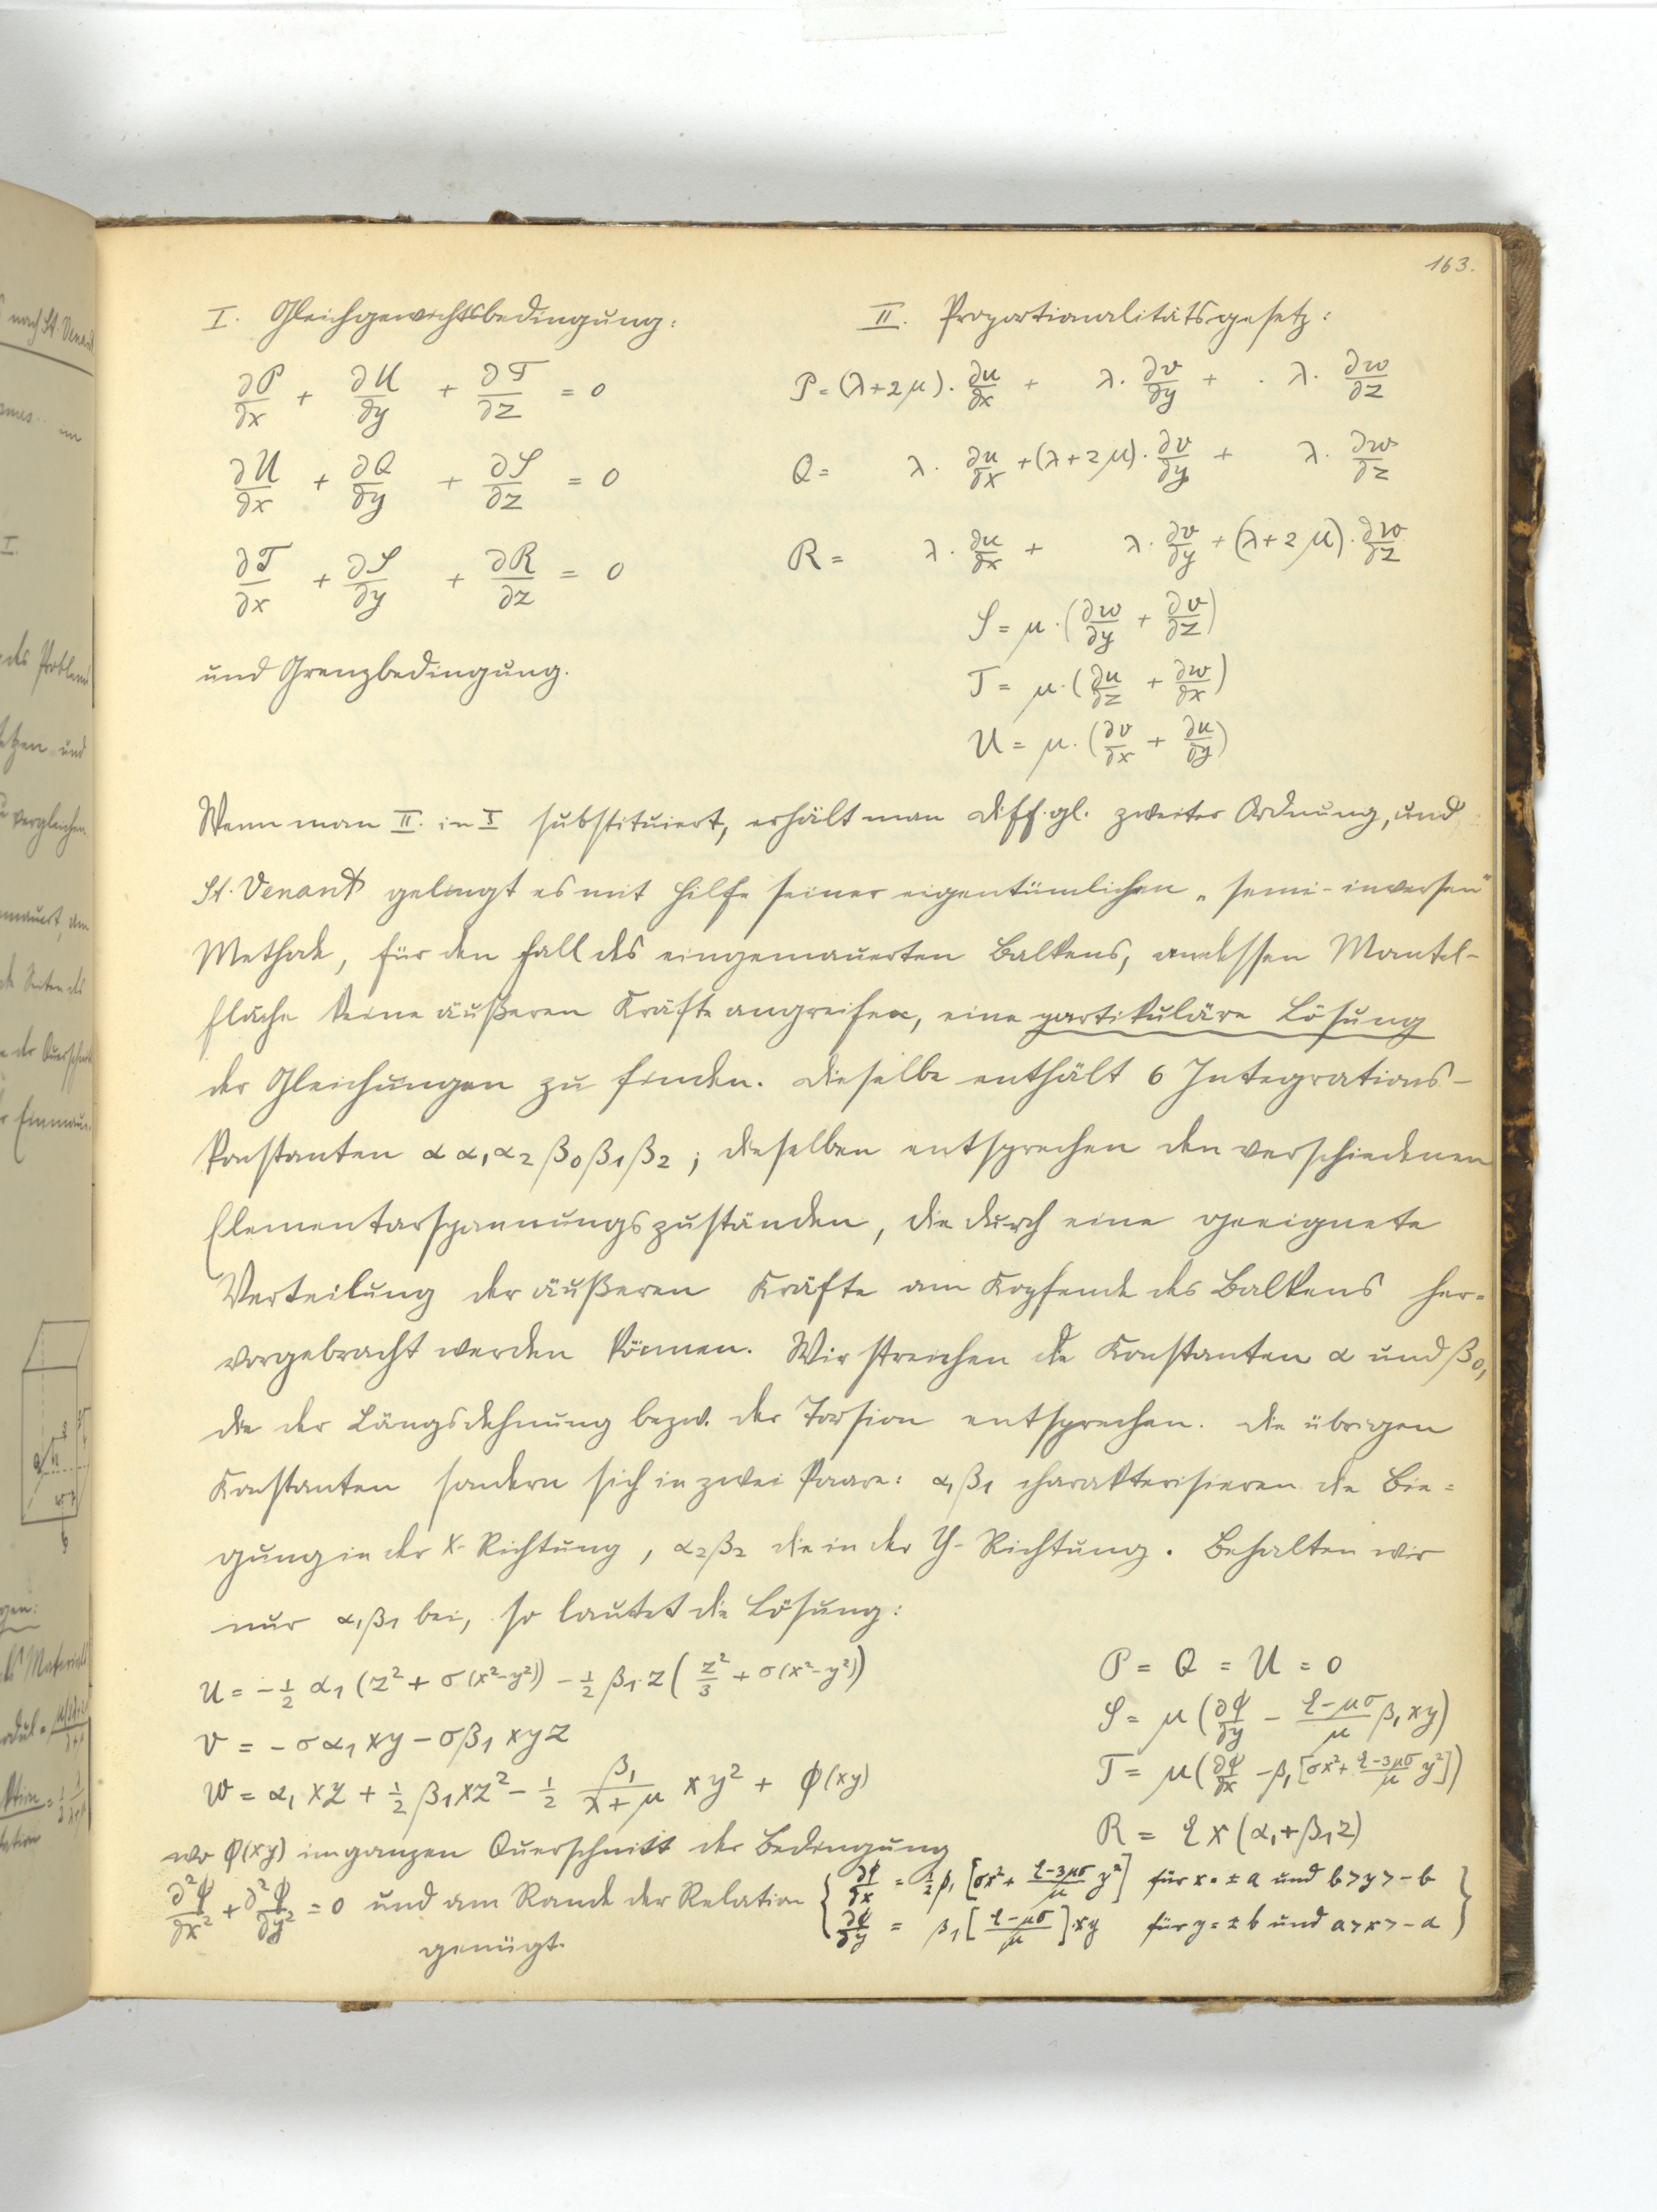 163.
I. Gleichgewichtsbedingung:
∂P/∂x + ∂U/∂y + ∂T/∂z = 0
∂U/∂x + ∂Q/∂y + ∂S/∂z = 0
∂T/∂x + ∂S/∂y + ∂R/∂z = 0
und Grenzbedingung.
II. Proportionalitätsgesetz:
P = (λ+2μ)·∂u/∂x + λ·∂v/∂y + λ·∂w/∂z
Q = λ·∂u/∂x + (λ+2μ)·∂v/∂y + λ·∂w/∂z
R = λ·∂u/∂x + λ·∂v/∂y + (λ+2μ)·∂w/∂z
S = μ·(∂w/∂y + ∂v/∂z)
T = μ·(∂u/∂z + ∂w/∂x)
U = μ·(∂v/∂x + ∂u/∂y)
Wenn man II. in I substituiert, erhält man Diff.gl. zweiter Ordnung, und
St. Venant gelingt es mit Hilfe seiner eigentümlichen „semi-inversen"
Methode, für den Fall des eingemauerten Balkens, an dessen Mantel-
fläche keine äußeren Kräfte angreifen, eine partikuläre Lösung
der Gleichungen zu finden. Dieselbe enthält 6 Integrations-
konstanten α α₁ α₂ β₀ β₁ β₂; dieselben entsprechen den verschiedenen
Elementarspannungszuständen, die durch eine geeignete
Verteilung der äußeren Kräfte am Kopfende des Balkens her=
vorgebracht werden können. Wir streichen die Konstanten α und β₀,
die der Längsdehnung bezw. der Torsion entsprechen. Die übrigen
Konstanten sondern sich in zwei Paare: α₁β₁ charakterisieren die Bie=
gung in der X-Richtung, α₂β₂ die in der Y-Richtung. Behalten wir
nur α₁β₁ bei, so lautet die Lösung:
u = -½ α₁ (z² + σ(x²-y²)) - ½ β₁·z (z²/3 + σ(x²-y²))
v = -σα₁xy - σβ₁xyz
w = α₁xz + ½ β₁xz² - ½ β₁/(λ+μ) xy² + φ(xy)
P = Q = U = 0
S = μ(∂φ/∂y - (ξ-μσ)/μ β₁xy)
T = μ(∂φ/∂x - β₁[σx² + (ξ-3μσ)/μ y²])
R = ξx(α₁+β₁z)
wo φ(xy) im ganzen Querschnitt der Bedingung
∂²φ/∂x² + ∂²φ/∂y² = 0 und am Rande der Relation
{ ∂φ/∂x = ½β₁[σx² + (ξ-3μσ)/μ y²] für x = ±a und b>y>-b
∂φ/∂y = β₁[(ξ-μσ)/μ]·xy für y = ±b und a>x>-a }
genügt.